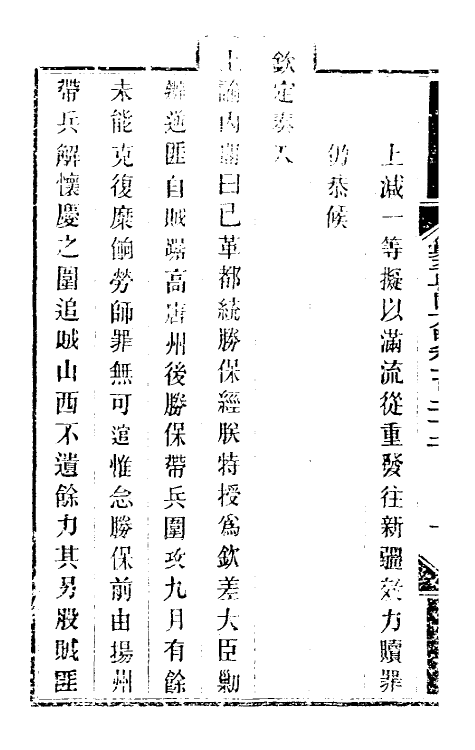 上減一等擬以滿流從重發往新疆效力贖罪
仍恭候
欽定奏入
上諭內閣曰已革都統勝保經朕特授爲欽差大臣勦
辦逆匪自賊踞高唐州後勝保帶兵圍攻九月有餘
未能克復糜餉勞師罪無可逭惟念勝保前由揚州
帶兵解懷慶之圍追賊山西不遺餘力其另股賊匪